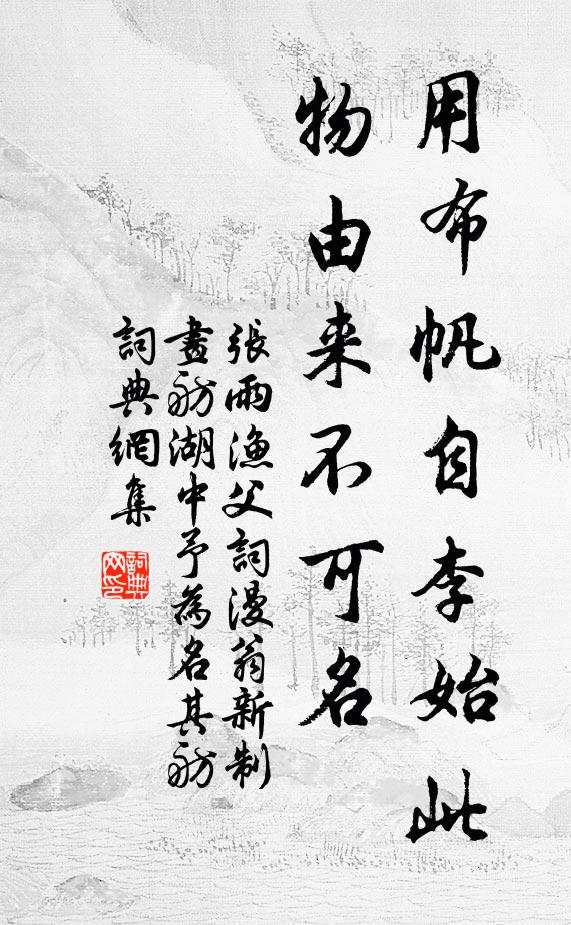 用布帆自李始此
物由来不可名
張雨漁父詞漫翁新制
畫舫湖中予為名其舫
詞典網集
詞典網印